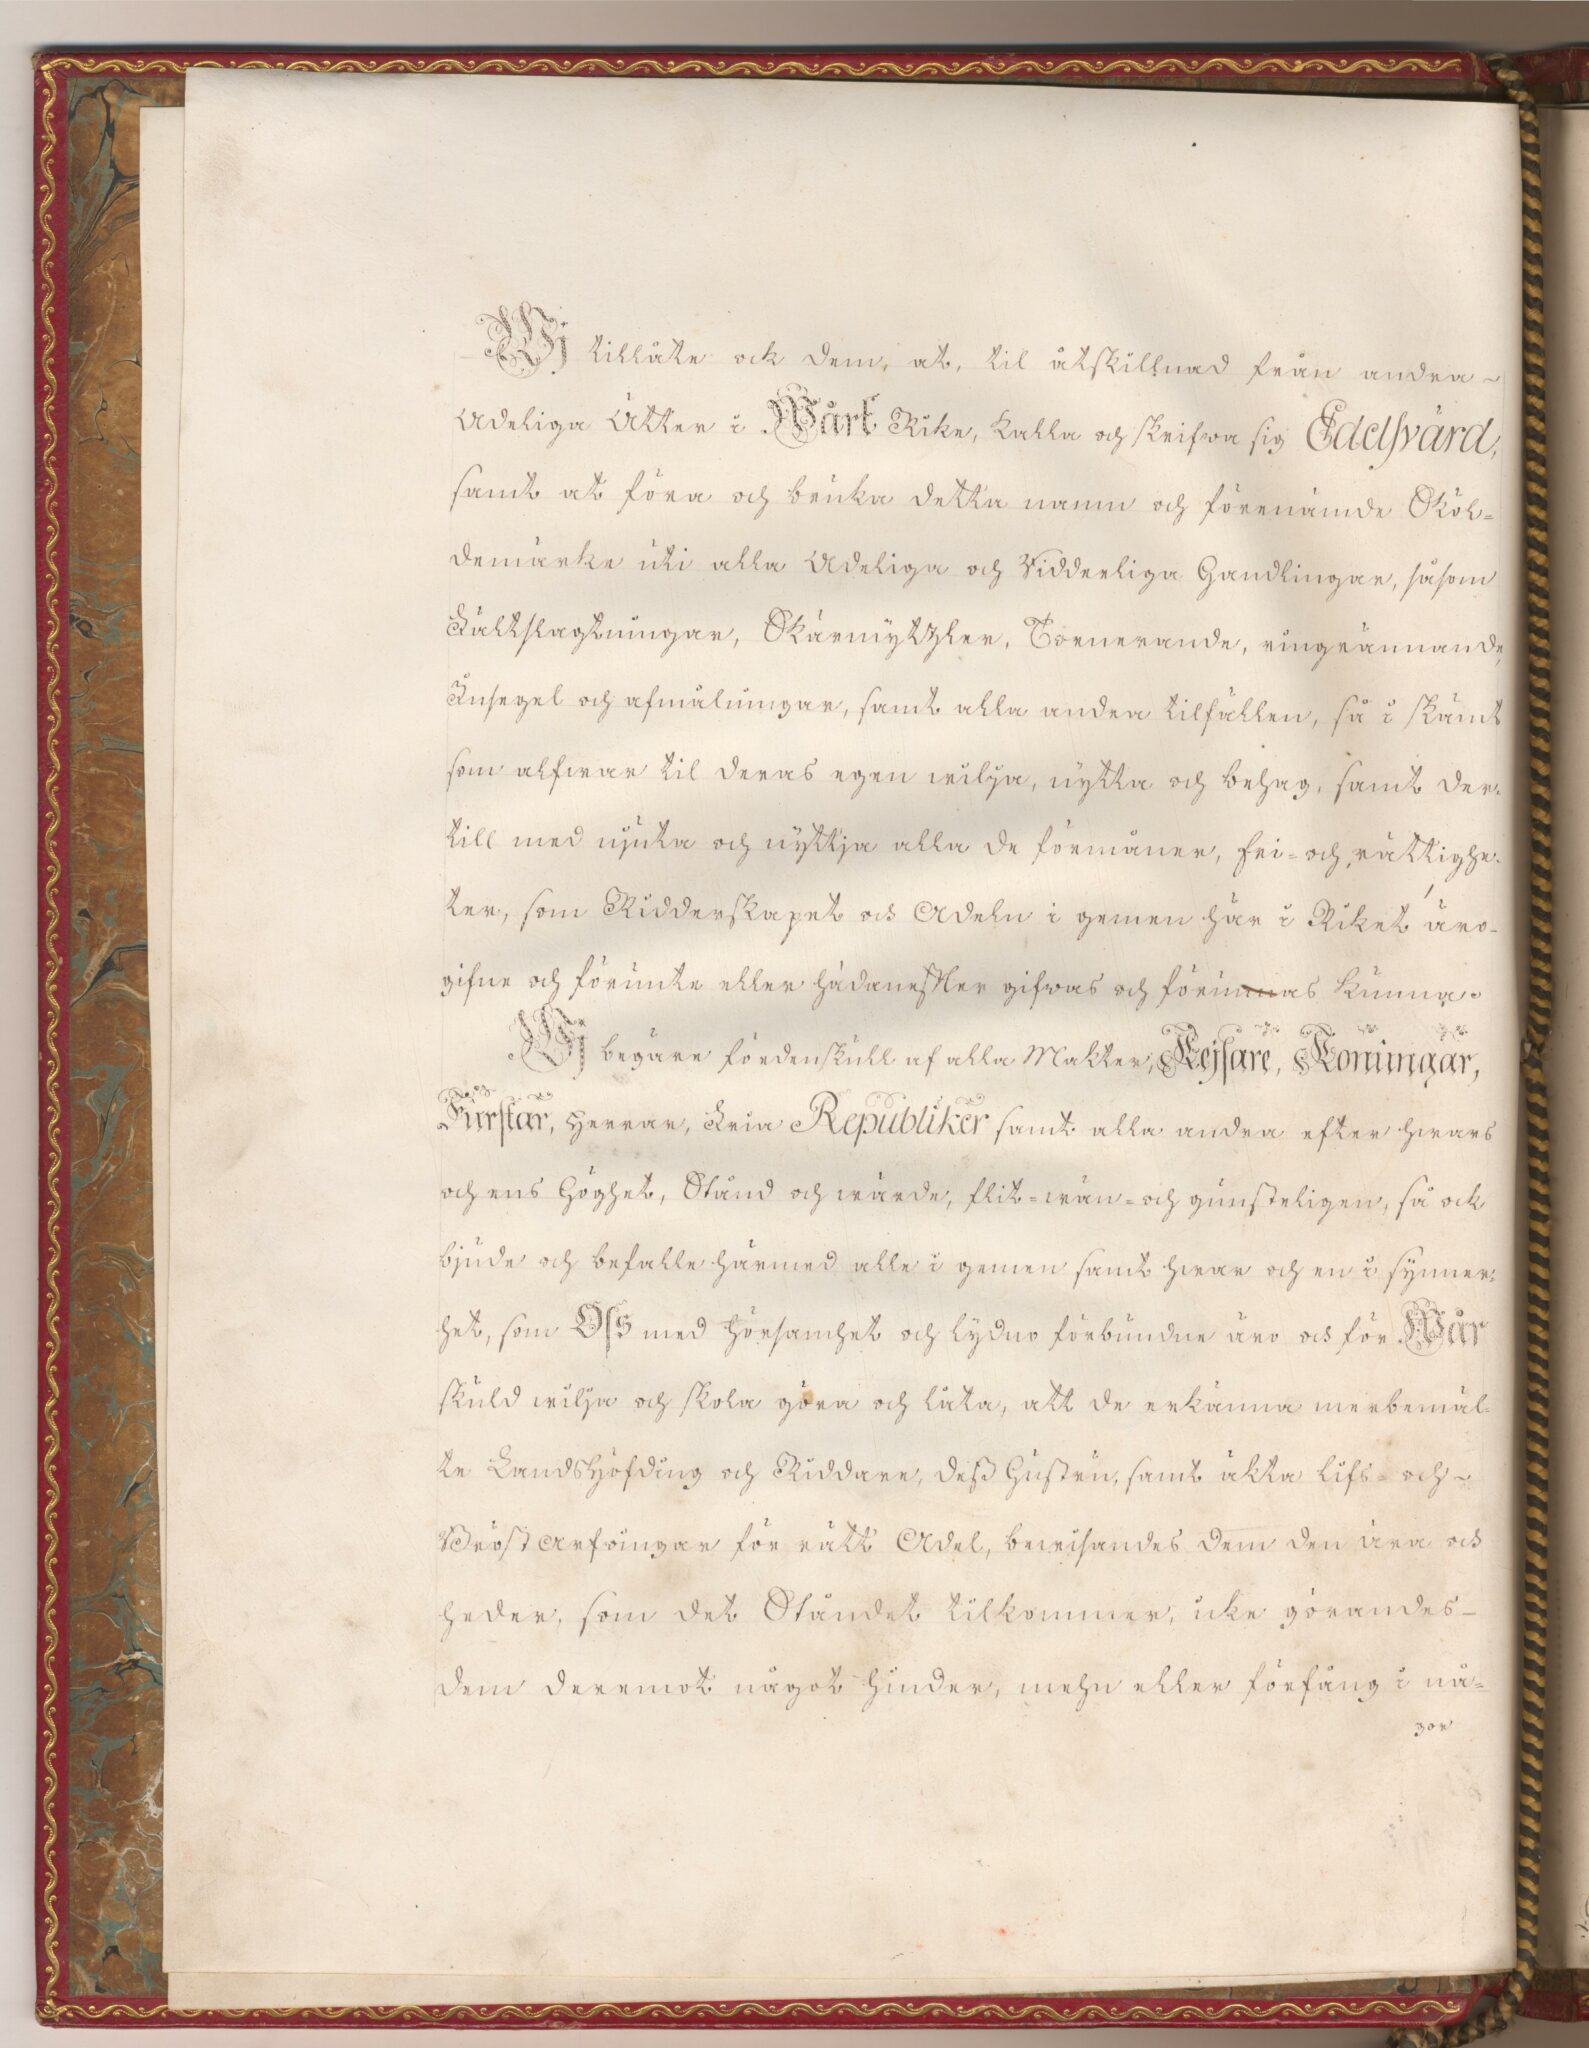 Wi tillåte ock dem, at, til åtskillnad från andra
Adeliga Ätter i Wårt Rike, kalla och skrifwa sig Edelsvärd,
samt at föra och bruka detta namn och förenämde Sköl-
demärke uti alla Adeliga och Ridderliga Handlingar, såsom
Fältslagtningar, Skärmytzler, Tornerande, ringrännande,
Insegel och afmålningar, samt alla andra tilfällen, så i skämt
som alfwar til deras egen wilja, nytta och behag, samt der-
till med njuta och nyttja alla de förmåner, fri- och rättighe-
ter, som Ridderskapet och Adeln i gemen här i Riket äro
gifne och förunte eller hädanefter gifwas och förunnas kunna.
Wi begäre fördenskull af alla Makter, Kejsare, Konungar,
Furstar, Herrar, Fria Republiker samt alla andra efter hwars
och ens Höghet, Stånd och wärde, flit- wän- och gunsteligen, så ock
bjude och befalle härmed alle i gemen samt hwar och en i synner-
het, som Oss med hörsamhet och lydno förbundne äro och för Wår
skuld wilja och skola göra och låta, att de erkänna merbemäl-
te Landshöfding och Riddare, dess Hustru, samt äkta lifs- och
Bröst Arfwingar för rätt Adel, bewisandes dem den ära och
heder, som det Ståndet tilkommer, icke görandes
dem deremot något hinder, mehn eller förfång i nå-
gor